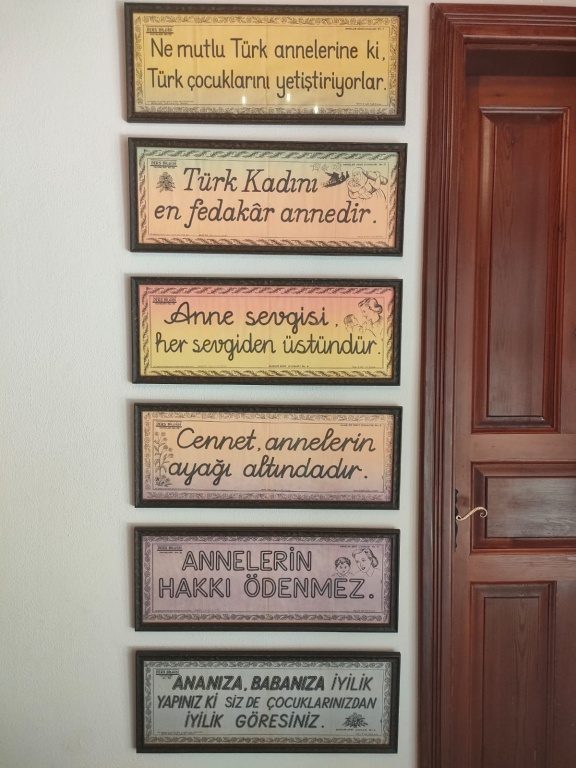 Ne mutlu Türk annelerine ki,
Türk çocuklarını yetiştiriyorlar.
Türk Kadını
en fedakâr annedir.
Anne sevgisi,
her sevgiden üstündür.
Cennet, annelerin
ayağı altındadır.
ANNELERİN
HAKKI ÖDENMEZ.
ANANIZA, BABANIZA İYİLİK
YAPINIZ Kİ SİZ DE ÇOCUKLARINIZDAN
İYİLİK GÖRESİNİZ.